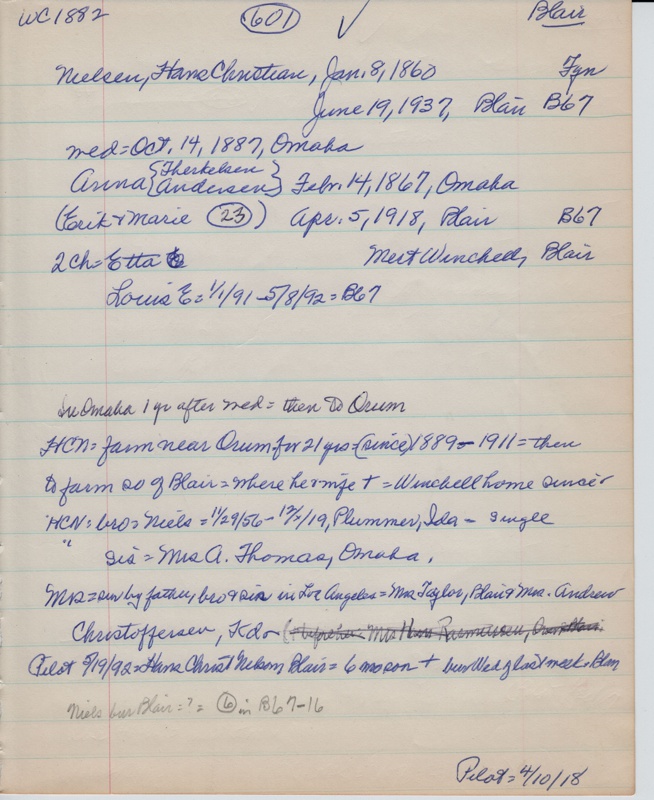 WC1882 601 ✓ Blair
Nielsen, Hans Christian, Jan. 8, 1860 Fyn
June 19, 1937, Blair B67
med = Oct. 14, 1887, Omaha
Anna {Therkelsen
Andersen} Febr. 14, 1867, Omaha
(Erik + Marie 23) Apr. 5, 1918, Blair B67
2 ch = Etta Mert Winchell, Blair
Louis E = 1/1/91 - 5/8/92 = B67
In Omaha 1 yr after med = then to Orum
HCN = farm near Orum for 21 yrs - (since) 1889 - 1911 = then
to farm so of Blair = where he + wife + = Winchell home since
HCN = bro = Niels = 11/29/56 - 12/ /19, Plummer, Ida - single
" sis = Mrs A. Thomas, Omaha.
Mrs = sur by father, bro + sis in Los Angeles = Mrs Taylor, Blair + Mrs. Andrew
Christoffersen, Kdo - ( Mrs Hans Rasmussen,
Pilot 5/19/92 = Hans Christ Nielsen Blair = 6 mo son + bur Wed of last week = Blair
Niels bur Blair = ? = 6 in B67-16
Pilot = 4/10/18